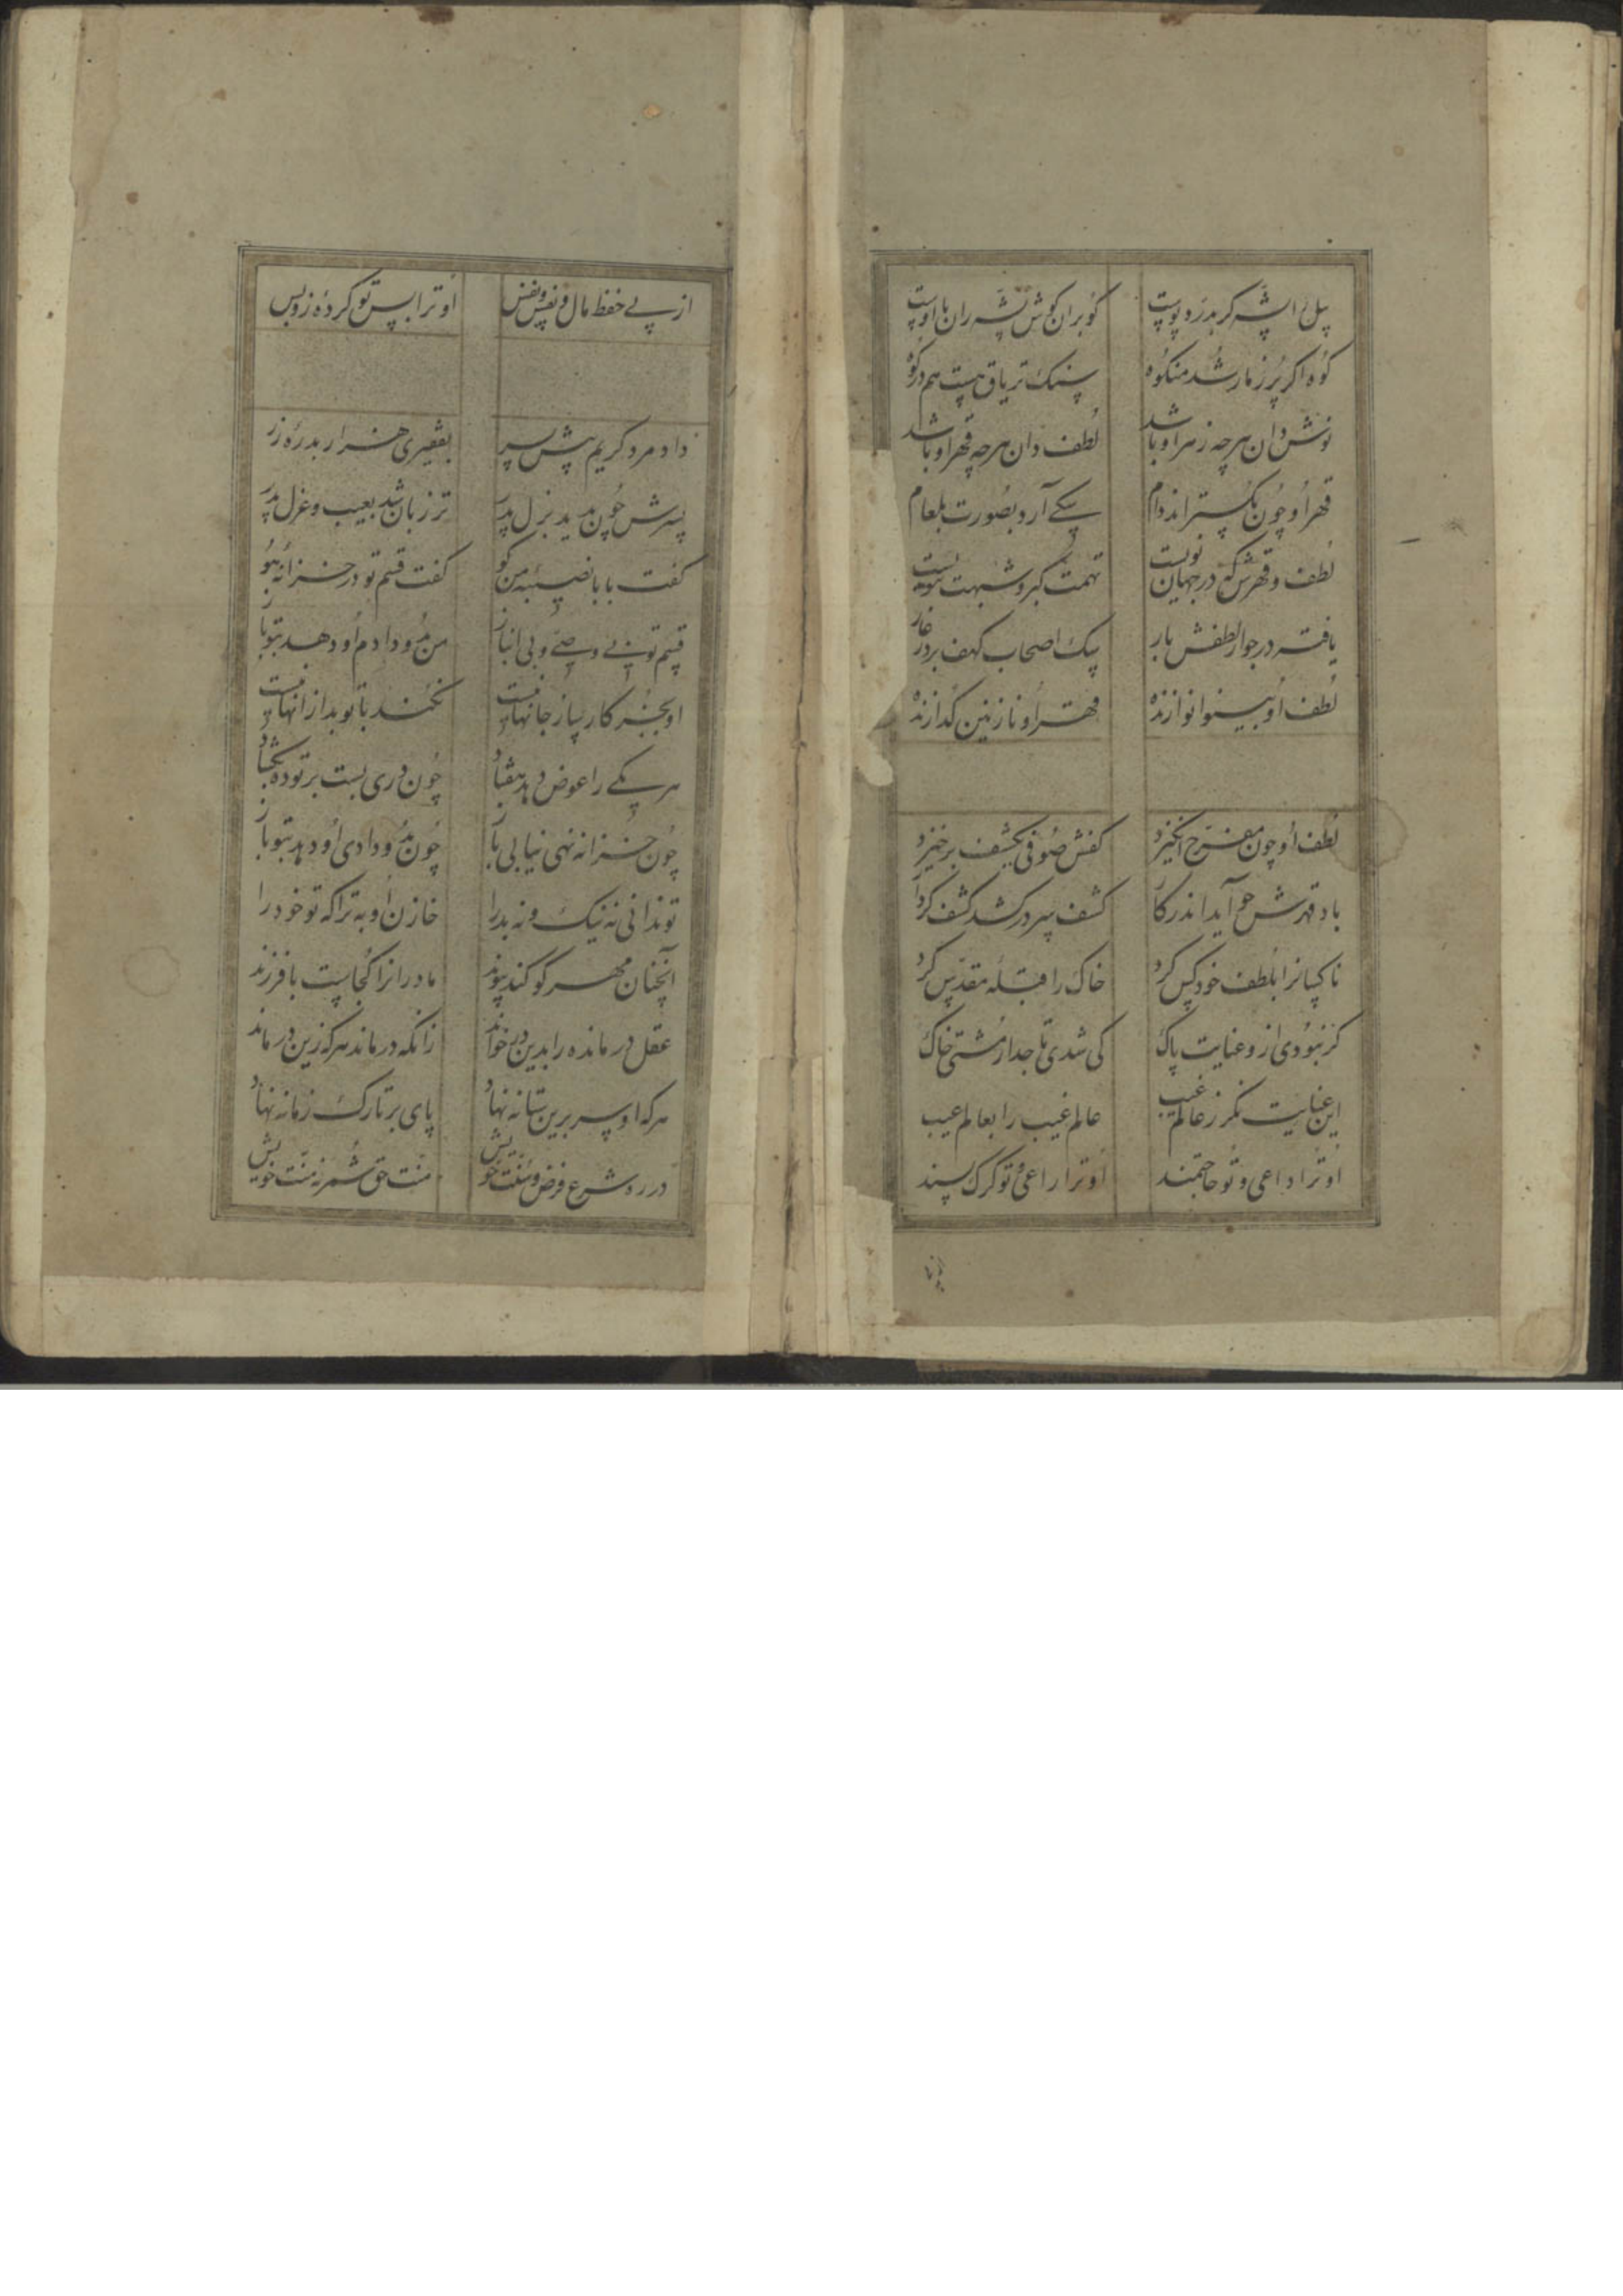 پیل را پشه گر بدرد پوست
گو بران گوش پشه ران با اوست
کوه اگر پر ز مار شد مشکوه
سنک تریاق هست هم در کوه
نوش دان هر چه زهر او باشد
لطف دان هر چه قهر او باشد
قهر او چون بگستراند دام
سگی آرد بصورت بلعام
لطف و قهرش که در جهان نویست
تهمت گبر و شبهت ثنویست
یافته در جوار لطفش بار
سک اصحاب کهف بر در غار
لطف او بینوا نوازنده
قهر او نازنین گدازنده
لطف او چون مفرح انگیزد
کفش صوفی بکشف برخیزد
باد قهرش چو آید اندر کار
کشف سر درکشد کشف کردار
ناکسانرا بلطف خود کس کرد
خاک را قبله مقدس کرد
گر نبودی ازو عنایت پاک
کی شدی تاجدار مشتی خاک
این عنایت نگر ز عالم غیب
عالم غیب را بعالم عیب
او ترا داعی و تو حاجتمند
او ترا راعی و تو گرگ پسند
از پی حفظ مال و نفس و نفس
او ترا بس تو کرده‌ زو بس
داد مرد کریم پیش پسر
بفقیری هزار بدره زر
پسرش چون بدید بذل پدر
تر زبان شد بعیب و عزل پدر
گفت بابا نصیبه من کو
گفت قسم تو در خزانه هو
قسم تو بی وصی و بی انباز
من بدو دادم او دهد بتو باز
او بجز کارساز جانها نیست
نکند با تو بد از آنها نیست
هر یکی را عوض دهد هفتاد
چون دری بست بر تو ده بگشاد
چون خزانه نهی نیابی باز
چون بدو دادی او دهد بتو باز
تو ندانی نه نیک و نه بد را
خازن او به ترا که تو خود را
آنچنان مهر کو کند پیوند
مادرانرا کجاست با فرزند
عقل درمانده را بدین در خواند
زانکه درماند هر که زین در ماند
هر که او سر برین ستانه نهاد
پای بر تارک زمانه نهاد
در ره شرع و فرض و سنت خویش
منت حق شمر نه منت خویش